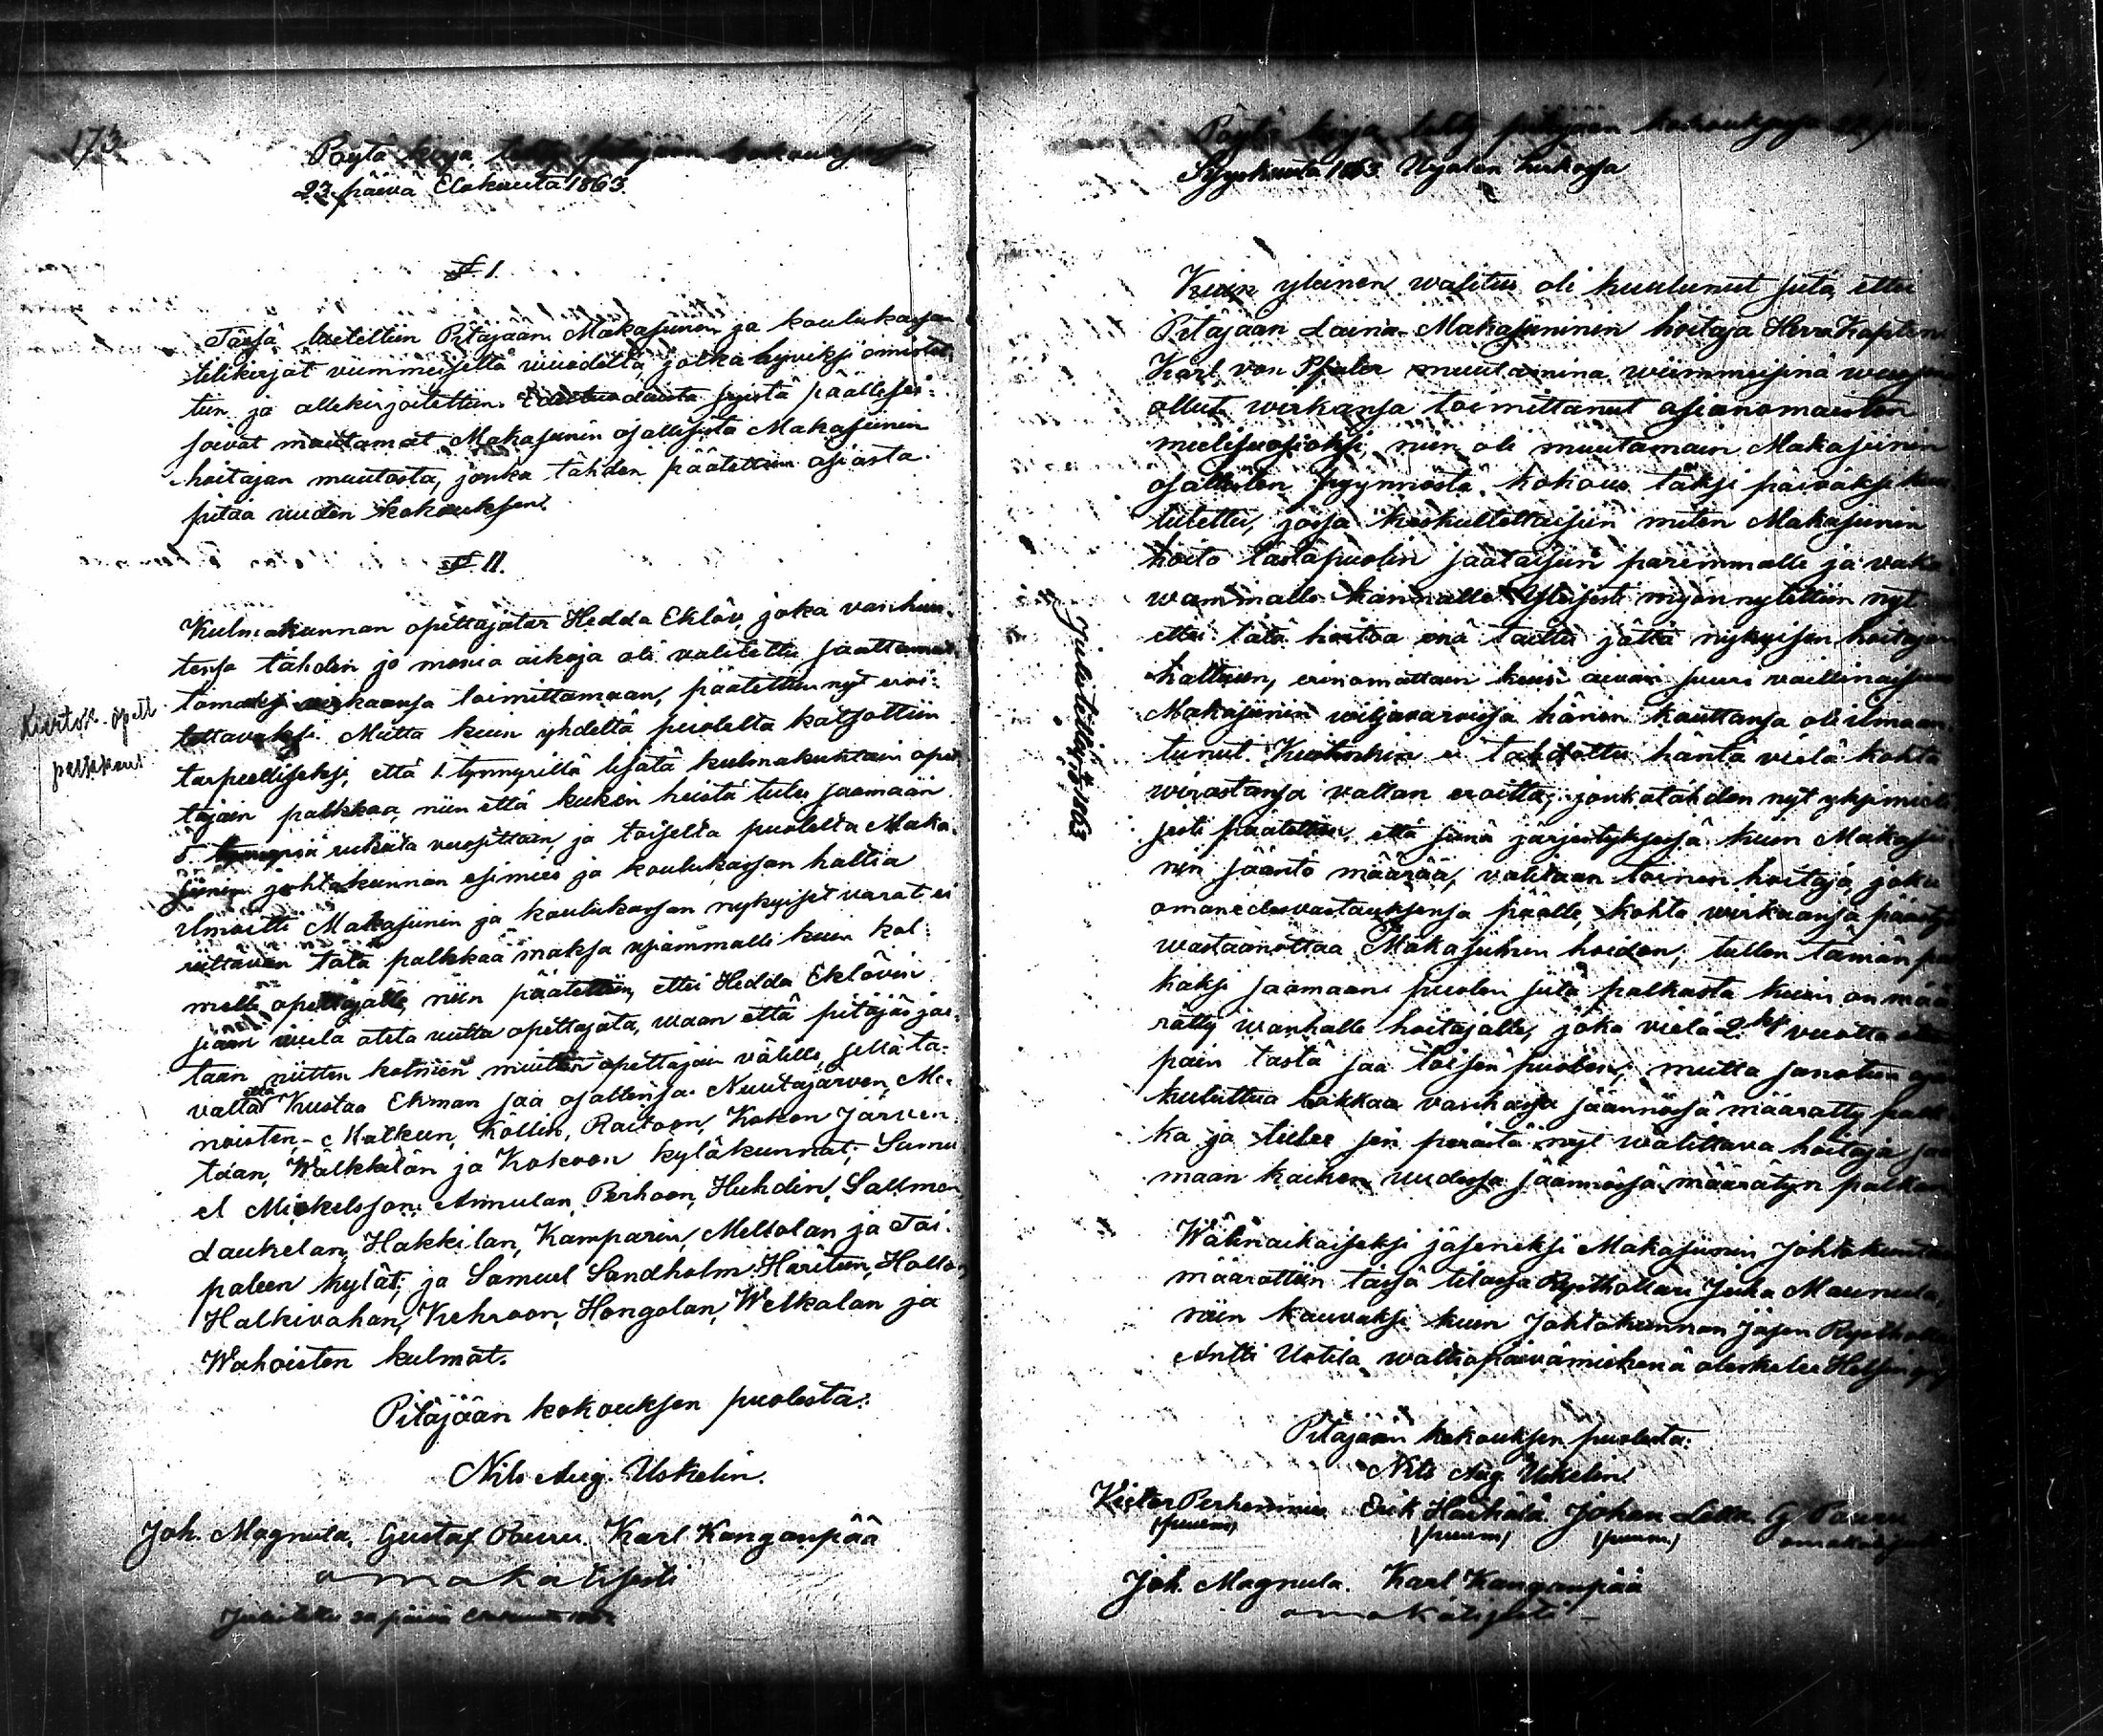 173
Pöytä kirja, tehty pitäjään kokouksessa
23. päivä Elokuuta 1863.
§ 1.
Tässä luetettiin Pitäjään Makasiinin ja koulukassan
tilikirjat viimmeiseltä vuodelta, jotka hyviksi omistet-
tiin ja allekirjoitettiin. päällisei-
soivat muutamat Makasiinin osallisista Makasiinin
hoitajan muutosta, jonka tähden päätettiin asiasta
pitää uuden kokouksen.
§ II.
Kulmakunnan opettajatar Hedda Eklöv, joka vanhuu-
tensa tähden jo monia aikoja oli valitettu saattamat-
tomaksi virkaansa toimittamaan, päätettiin nyt eroi-
tettavaksi. Mutta kuin yhdeltä puolelta katsottiin
tarpeelliseksi, että 1. tynnyrillä lisätä kulmakuntain opet-
tajain palkkaa, niin että kukin heistä tulee saamaan
5 tynnyriä rukiita vuosittain, ja toiselta puolelta Maka-
siinin johtokunnan esimies ja koulukassan haltia
ilmoitti Makasiinin ja koulukassan nykyiset varat ei
riittävän tätä palkkaa maksa usiammalle kuin kol-
melle opettajalle, niin päätettiin, ettei Hedda Eklövin
siaan vielä oteta uutta opettajata, waan että pitäjäs jae-
taan niitten kolmien muitten opettajain välille, sillä ta-
valla että Kustaa Ekman saa osallensa Nuutajärven, Me-
noisten, Matkun, Köllin, Raitoon, Kokon Järven-
taan, Wälkkilän ja Kokoon kyläkunnat; Samu-
el Mickelsson: Annulan, Perhoon, Huhdin, Sallmen
Laukelan, Hakkilan, Kamparin, Mellolan ja Tai-
paleen kylät; ja Samuel Sandholm: Häritun, Hallon
Halkivahan, Kehroon, Hongolan, Welkalan ja
Wahoisten kulmat.
Kiertok. opett
palkkaus
Pitäjään kokouksen puolesta:
Nils Aug. Uskelin.
Joh. Magnula, Gustaf Pauru. Karl Kanganpää
omakätisesti
Julistettu 30 päivä
Pöytä kirja tehty pitäjään kokouksessa
Syyskuuta 1863 Urjalan kirkossa
Kuin yleinen walitus oli kuulunut siitä, ettei
Pitäjään Laina-Makasiininin hoitaja Herra Kapten
Karl von Pfaler muutamina wiimmeisinä wuosina
ollut wirkansa toimittanut asianomaisten
mielisuosioksi, niin oli muutamain Makasiinin
osallisten pyynnöstä kokous täksi päiväksi kuu-
lutettu, jossa keskulteltaisiin miten Makasiinin
hoito tästäpuolin saataisiin paremmalle ja vaka-
wammalle kannalle. Yleisesti myönnytettiin nyt
ettei tätä hoitoa enä taittu jättä nykyisen hoitajan
haltuun, erinomattain kuin aivan suuri vaillinaisuus
Makasiinin wiljavaroissa hänen kauttansa oli ilmaan-
tunut. Kuitenkin ei tahdottu häntä vielä kohta
wirastansa vallan eroittaa, jonkatähden nyt yksimieli-
sesti päätettiin, että siinä järjestyksessä kuin Makasii-
nin sääntö määrää, valitaan toinen hoitaja, joka
omanedesvastauksensa päälle, kohta wirkaansa päästyä
wastaanottaa Makasiinin hoidon, tullen tämän
kaksi saamaan puolen siitä palkasta kuin on mää-
rätty wanhalle hoitajalle, joka vielä 2 vuotta
päin tästä saa toisen puolen; mutta sanotun ajan
kuluttua lakkaa vanhassa säännössä määrätty palk-
ka ja tulee sen perästä nyt walittava hoitaja saa-
maan kaiken uudessa säännössä määrätyn palkan
julistettu 1863
Wälinaikaiseksi jäseneksi Makasiinin Johtokuntaan
määrättiin tässä tilassa Rysthollari Juha Maunula,
niin kauvaksi kuin Johtokunnan Jäsen Rystholl
Antti Uotila waltiopäivämiehenä oleskelee Helsingis
Pitäjään kokouksen puolesta:
Nils Aug. Uskelin
Kistar Perhonmies Erik Haihala Johan G. Pauru
(puum) (puum) (puum) omakätisesti
Joh. Magnula. Karl Kanganpää
omakätisesti